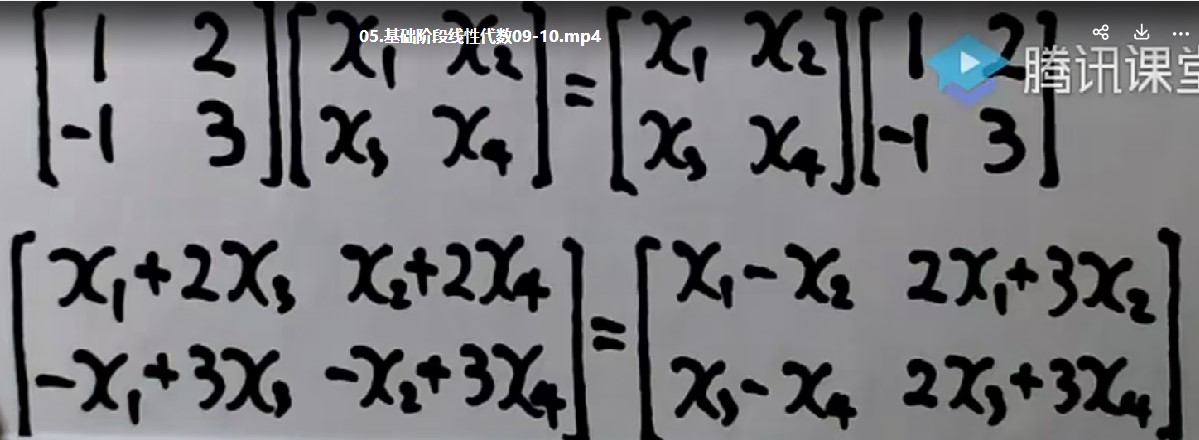 05.基础阶段线性代数09-10.mp4
腾讯课堂
[1 2; -1 3] [x₁ x₂; x₃ x₄] = [x₁ x₂; x₃ x₄] [1 2; -1 3]
[x₁+2x₃ x₂+2x₄; -x₁+3x₃ -x₂+3x₄] = [x₁-x₂ 2x₁+3x₂; x₃-x₄ 2x₃+3x₄]